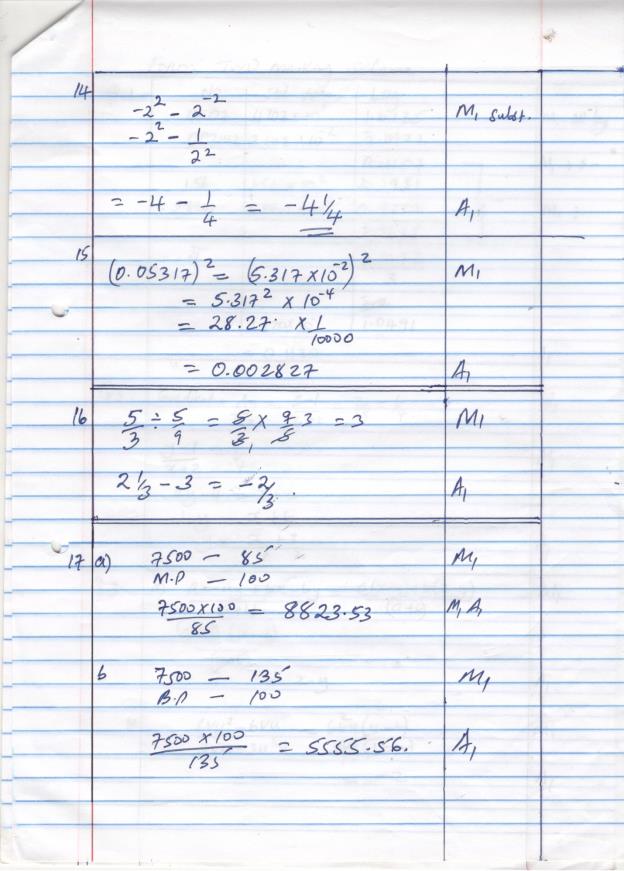 14
-2² - 2⁻² M₁ subst.
-2² - 1/2²
= -4 - 1/4 = -4 1/4 A₁
15
(0.05317)² = (5.317 × 10⁻²)² M₁
= 5.317² × 10⁻⁴
= 28.27 × 1/10000
= 0.002827 A₁
16 5/3 ÷ 5/9 = 5/3₁ × 9/5 3 = 3 M₁
2 1/3 - 3 = -2/3. A₁
17 a) 7500 — 85 M₁
M.P — 100
7500×100/85 = 8823.53 M₁ A₁
b 7500 — 135 M₁
B.P — 100
7500 × 100/135 = 5555.56. A₁